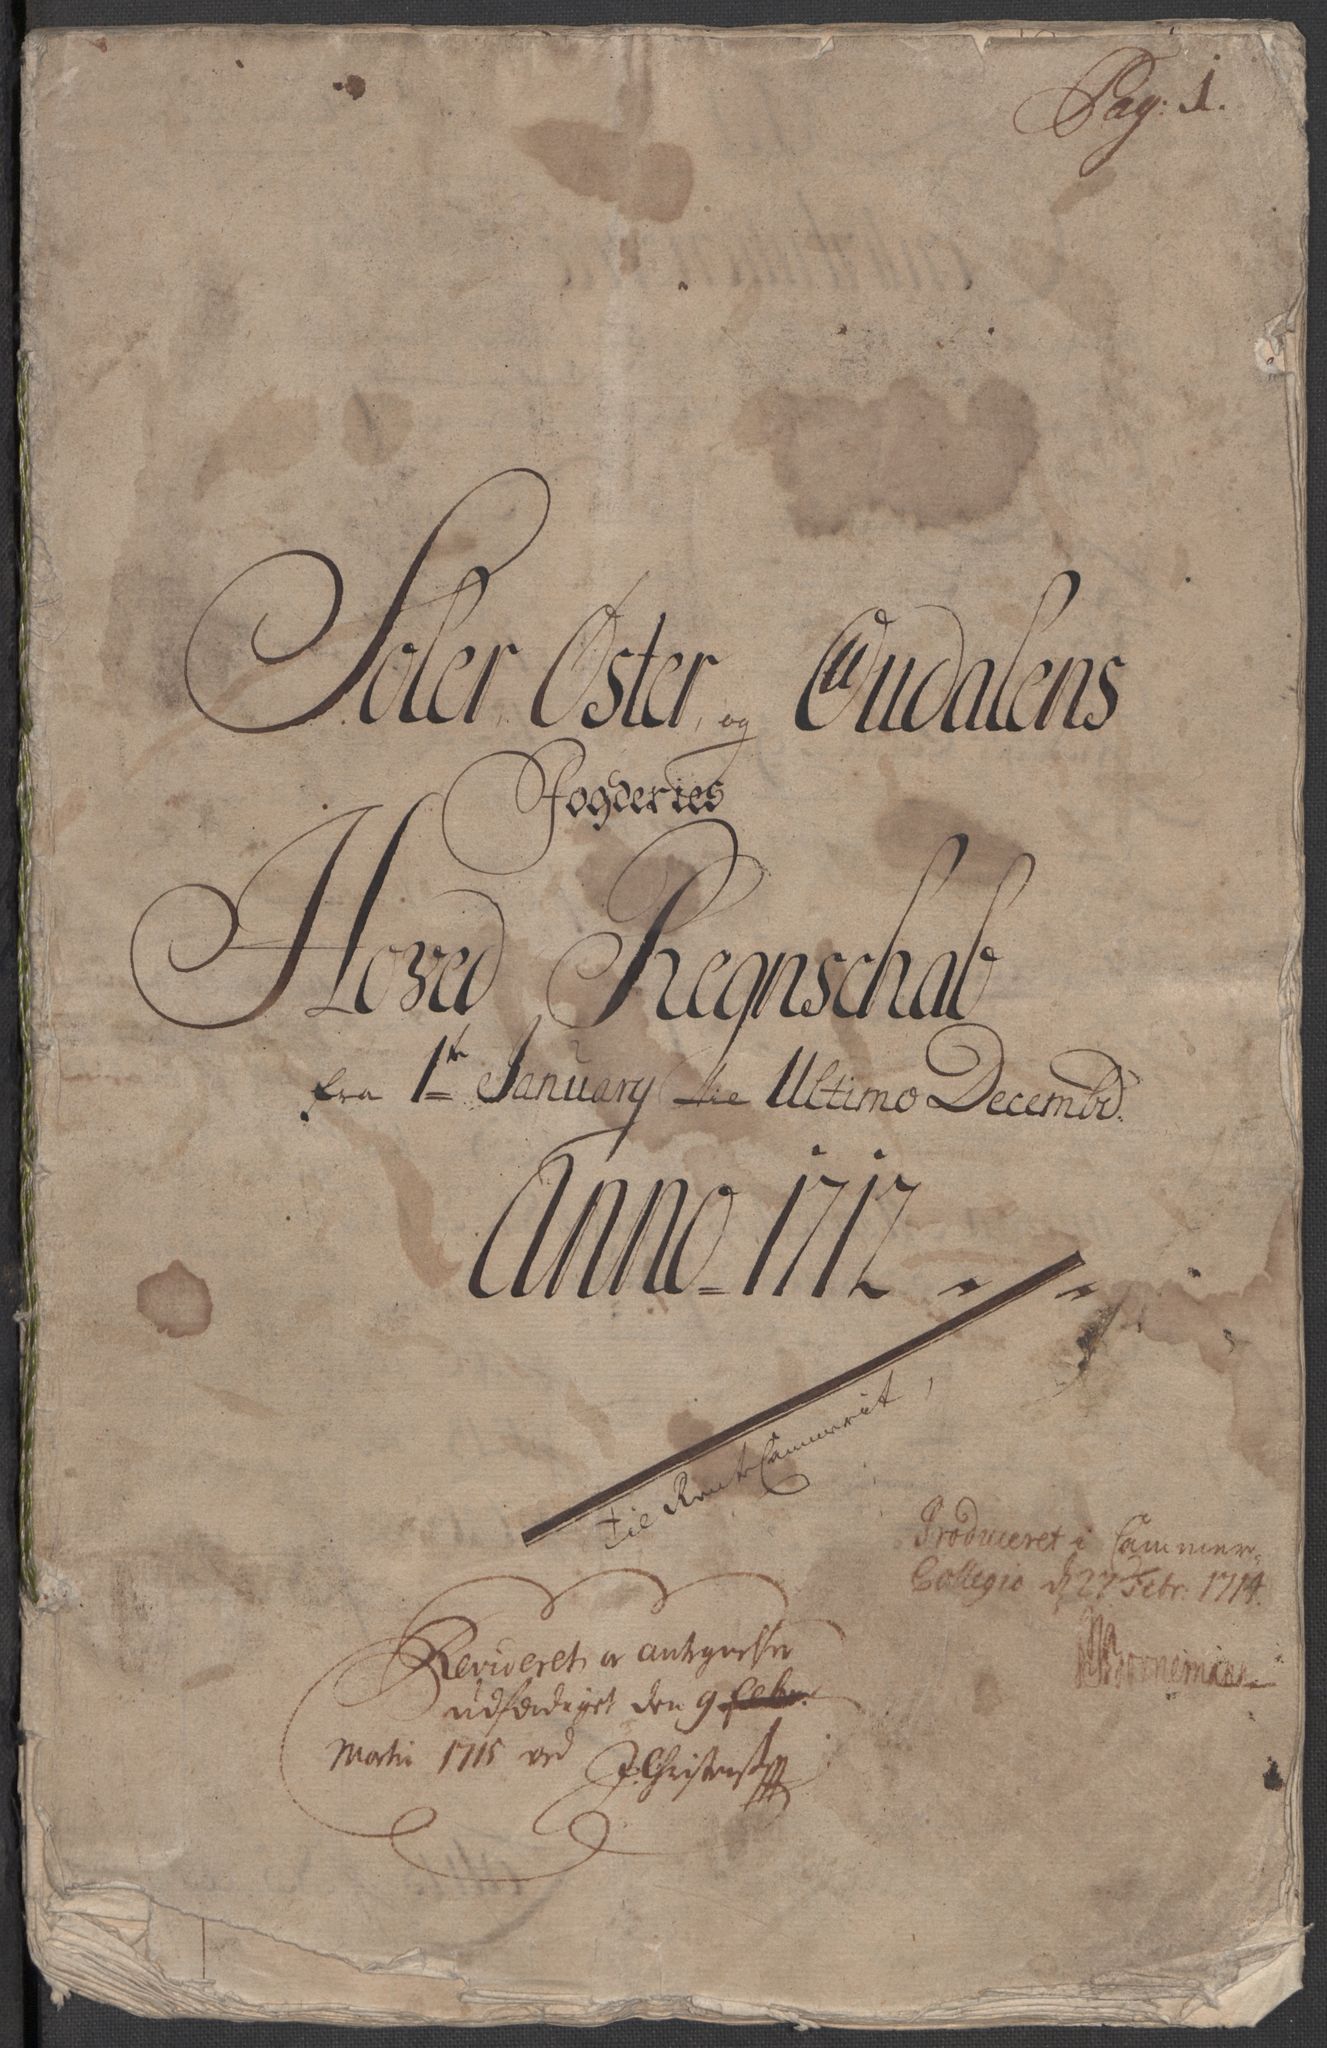 Pag: 1.
Soler, Øster, og Oudalens
Fogderies
Hoved Regnschab
fra 1te January til Ultimo Decembr:
Anno = 1712
til Rente Cammerit
Produceret i Cammer-
Collegio d 27 Febr. 1714.
Bornemann
Revideret, og antegnelser
udfærdiget den 9 Febr.
Martii 1715 ved J. Christens